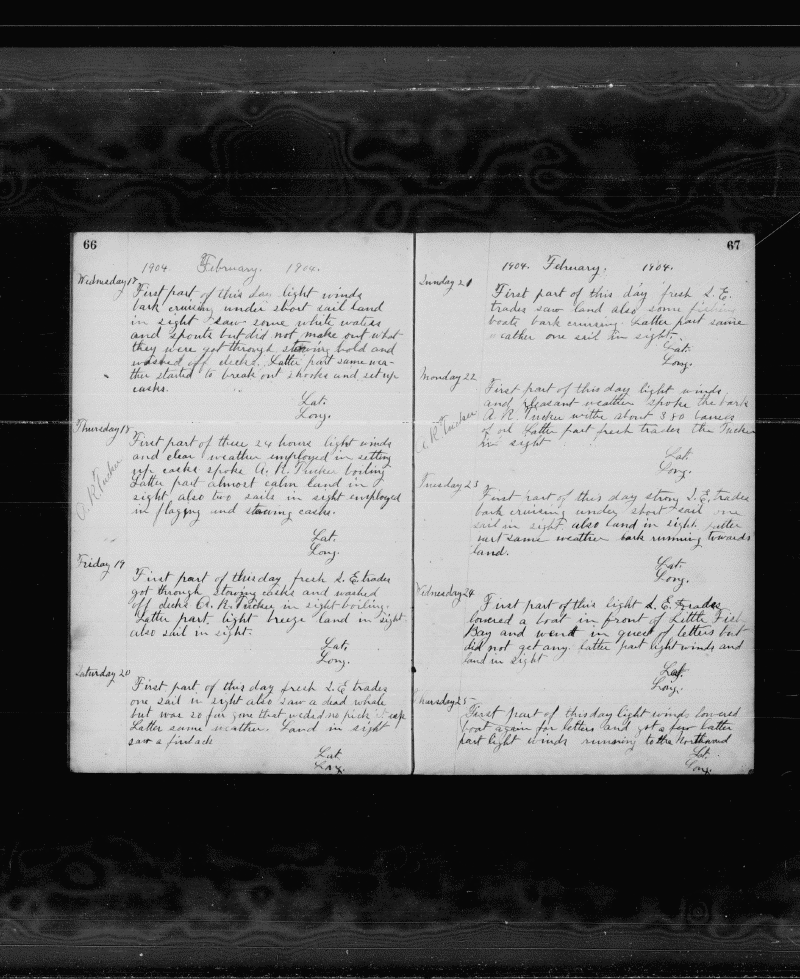 66
1904 February. 1904.
Wednesday 17
First part of this day light winds
bark cruising under short sail land
in sight saw some white waters
and spouts but did not make out what
they were got through stowing hold and
washed off decks. Latter part same wea-
ther started to break out shooks and set up
casks.
Lat.
Long.
Thursday 18
A. R. Tucker
First part of these 24 hours light winds
and clear weather employed in setting
up casks spoke A. R. Tucker boiling
Latter part almost calm land in
sight also two sails in sight employed
in flagging and stowing casks.
Lat.
Long.
Friday 19
First part of this day fresh S. E. trades
got through stowing casks and washed
off decks A. R. Tucker in sight boiling.
Latter part light breeze land in sight
also sail in sight.
Lat.
Long.
Saturday 20
First part of this day fresh S. E. trades
one sail in sight also saw a dead whale
but was so far gone that we did no pick it up
Latter same weather. Land in sight
saw a finback
Lat.
Long.
67
1904. February. 1904.
Sunday 21
First part of this day fresh S. E.
trades saw land also some fishing
boats bark cruising. Latter part same
weather one sail in sight.
Lat.
Long.
Monday 22
A. R. Tucker
First part of this day light winds
and pleasant weather spoke the bark
A. R. Tucker withe about 380 barrels
of oil Latter part fresh trades the Tucker
in sight
Lat
Long.
Tuesday 23
First part of this day strong S. E. trades
bark cruising under short sail one
sail in sight also land in sight. Latter
part same weather bark running towards
land.
Lat.
Long.
Wednesday 24
First part of this light S. E. trades
lowered a boat in front of Little Fish
Bay and went in quest of letters but
did not get any. latter part light winds and
land in sight
Lat.
Long.
Thursday 25
First part of this day light winds lowered
boat again for letters and got a few latter
part light winds running to the Northward
Lat.
Long.